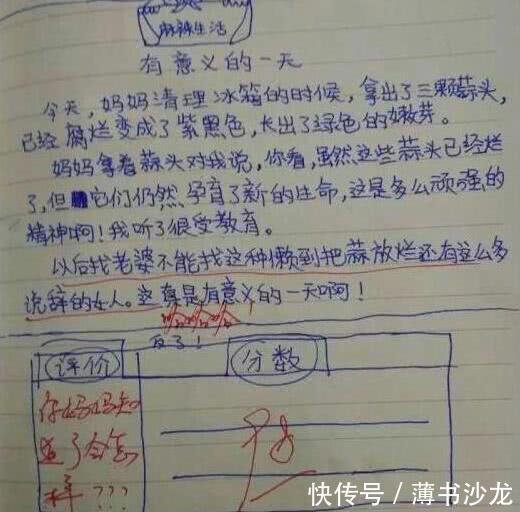 麻辣生活
有意义的一天
今天，妈妈清理冰箱的时候，拿出了三颗蒜头，
已经腐烂变成了紫黑色，长出了绿色的嫩芽。
妈妈拿着蒜头对我说，你看，虽然这些蒜头已经烂
了，但它们仍然孕育了新的生命，这是多么顽强的
精神啊！我听了很受教育。
以后找老婆不能找这种懒到把蒜放烂还有这么多
说辞的女人。这真是有意义的一天啊！
哈哈哈
评价
分数
你妈妈知
道了会怎
样？？？
98
快传号／薄书沙龙